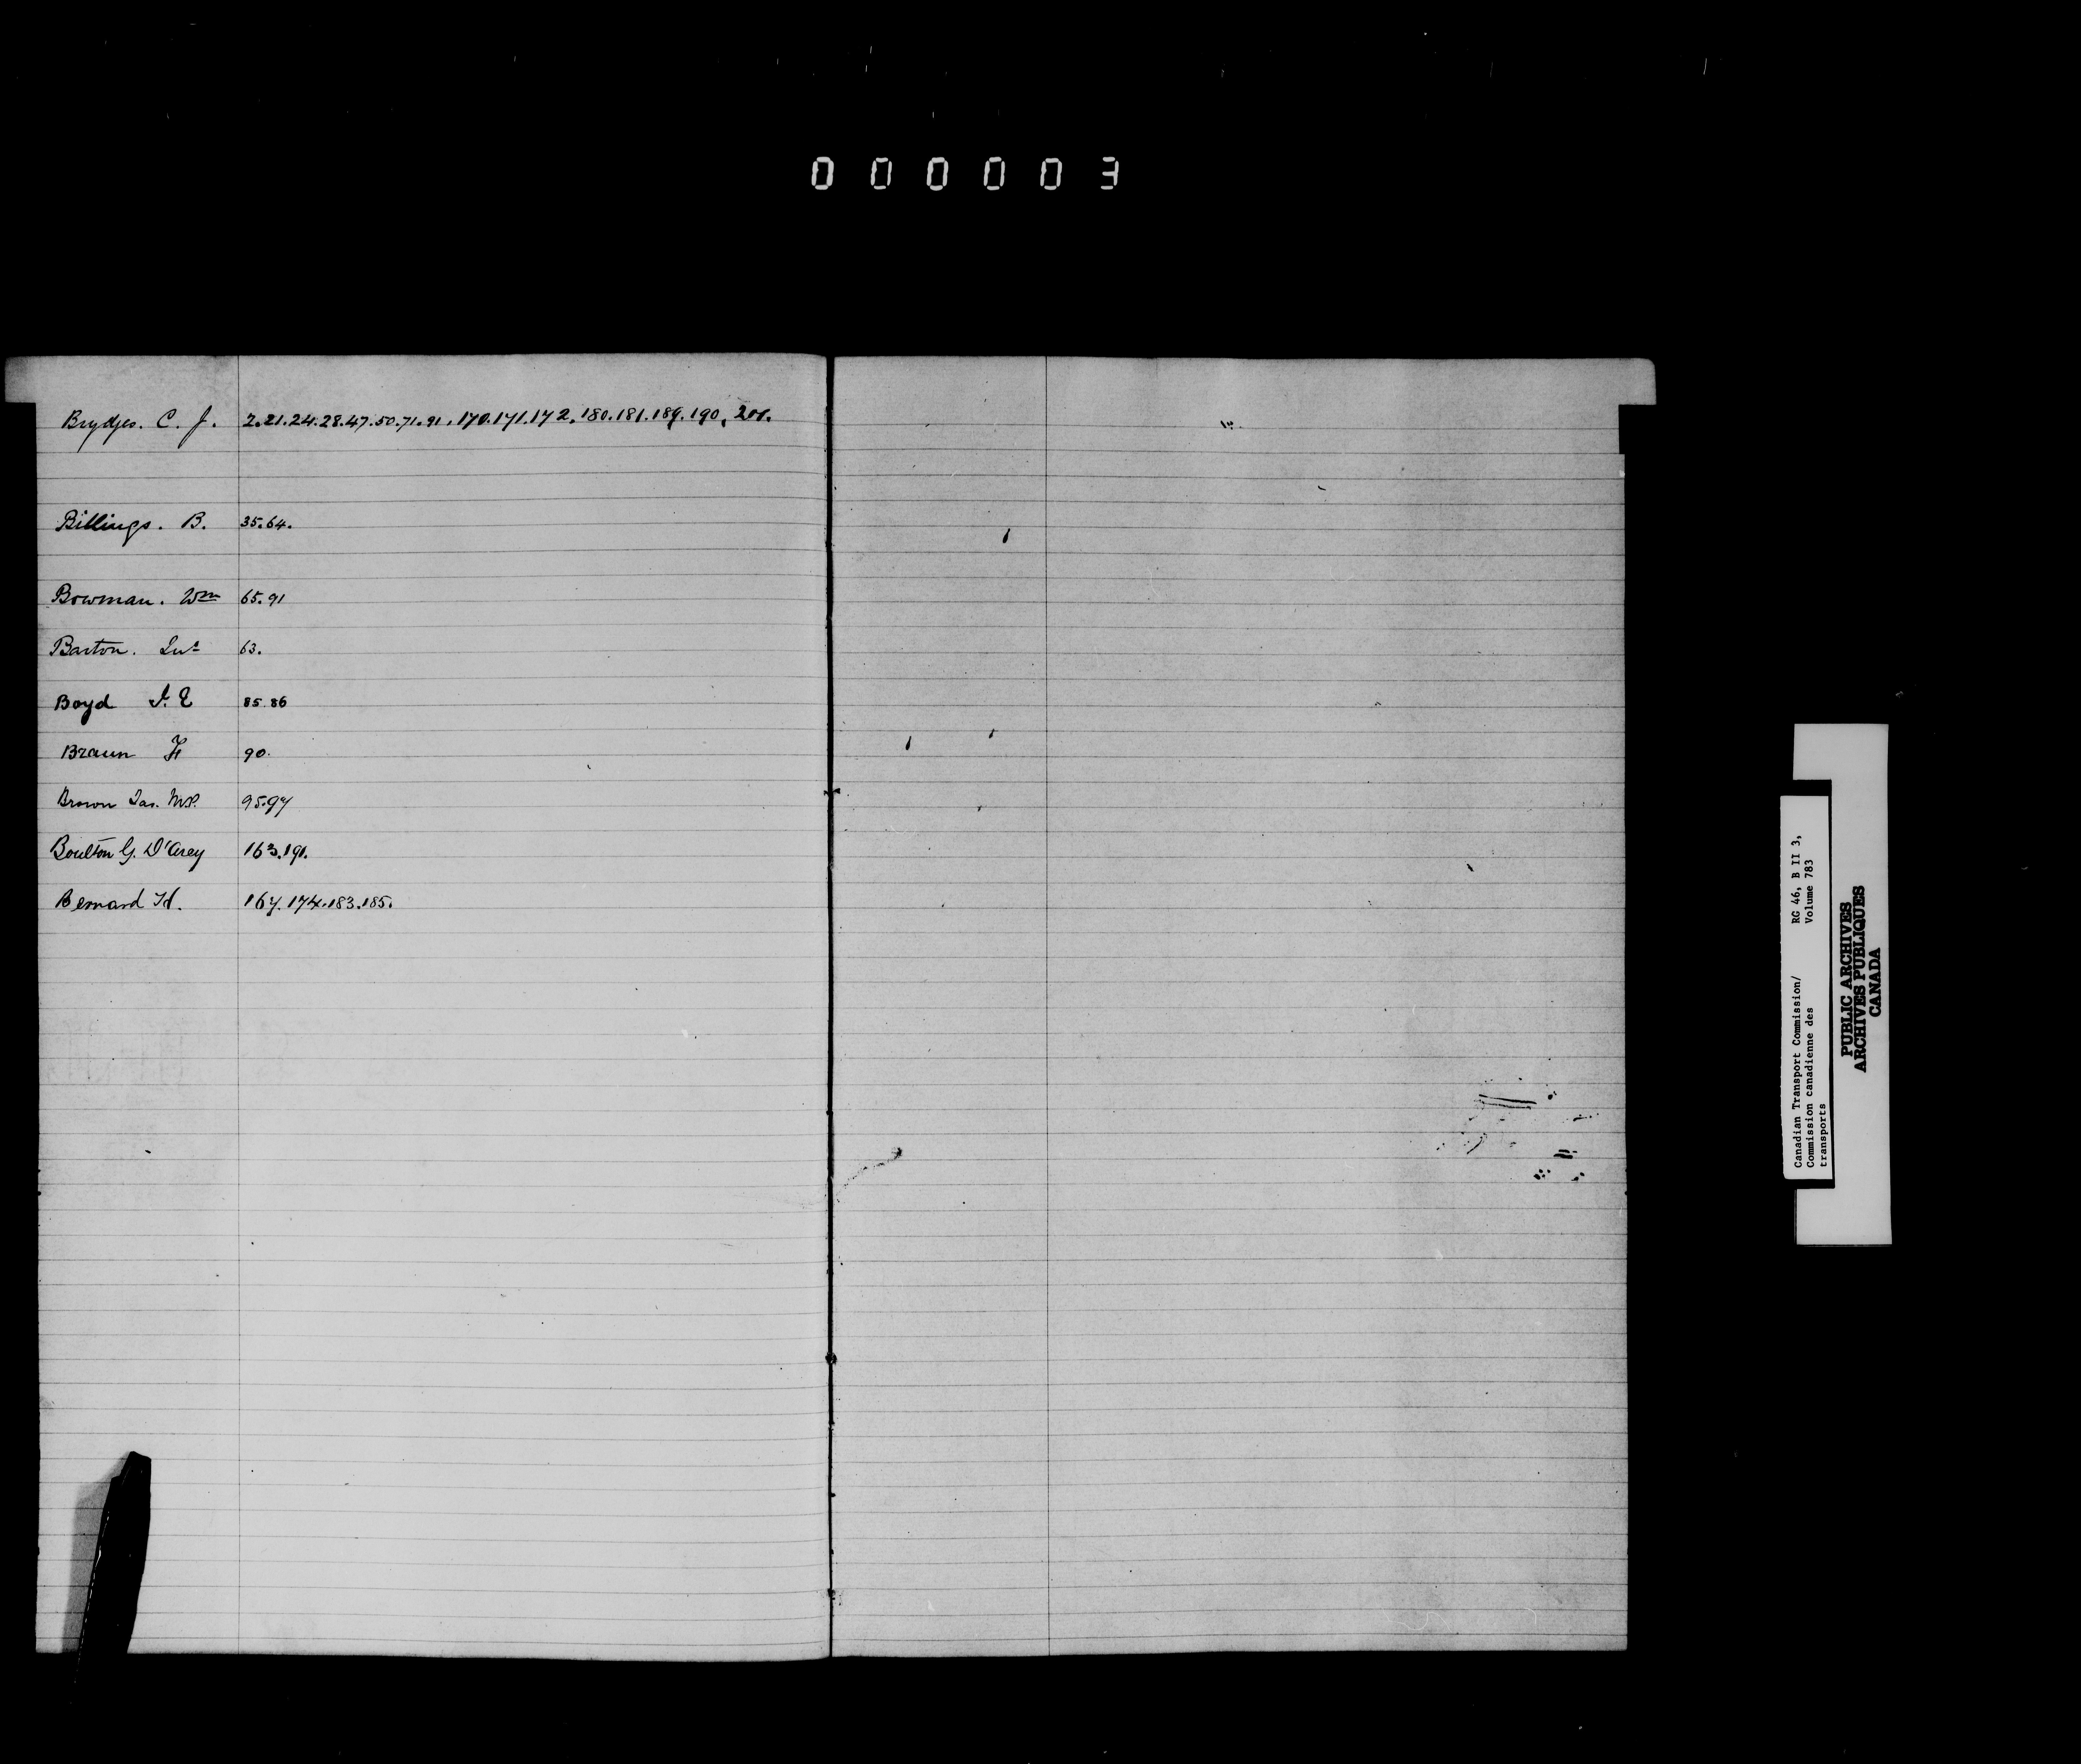 000003
Brydges. C. J. 2.21.24.28.47.50.71.91.170.171.172.180.181.189.190, 201.
Billings. B. 35.64.
Bowman. Wm 65.91
Barton. 63.
Boyd J. E 85.86
Braun F 90.
Brown Jas. M.P. 95.97
Boulton G. D'Arcy 163.191.
Bernard H. 167.174.183.185.
Canadian Transport Commission/ RG 46, B II 3,
Commission canadienne des Volume 783
transports
PUBLIC ARCHIVES
ARCHIVES PUBLIQUES
CANADA